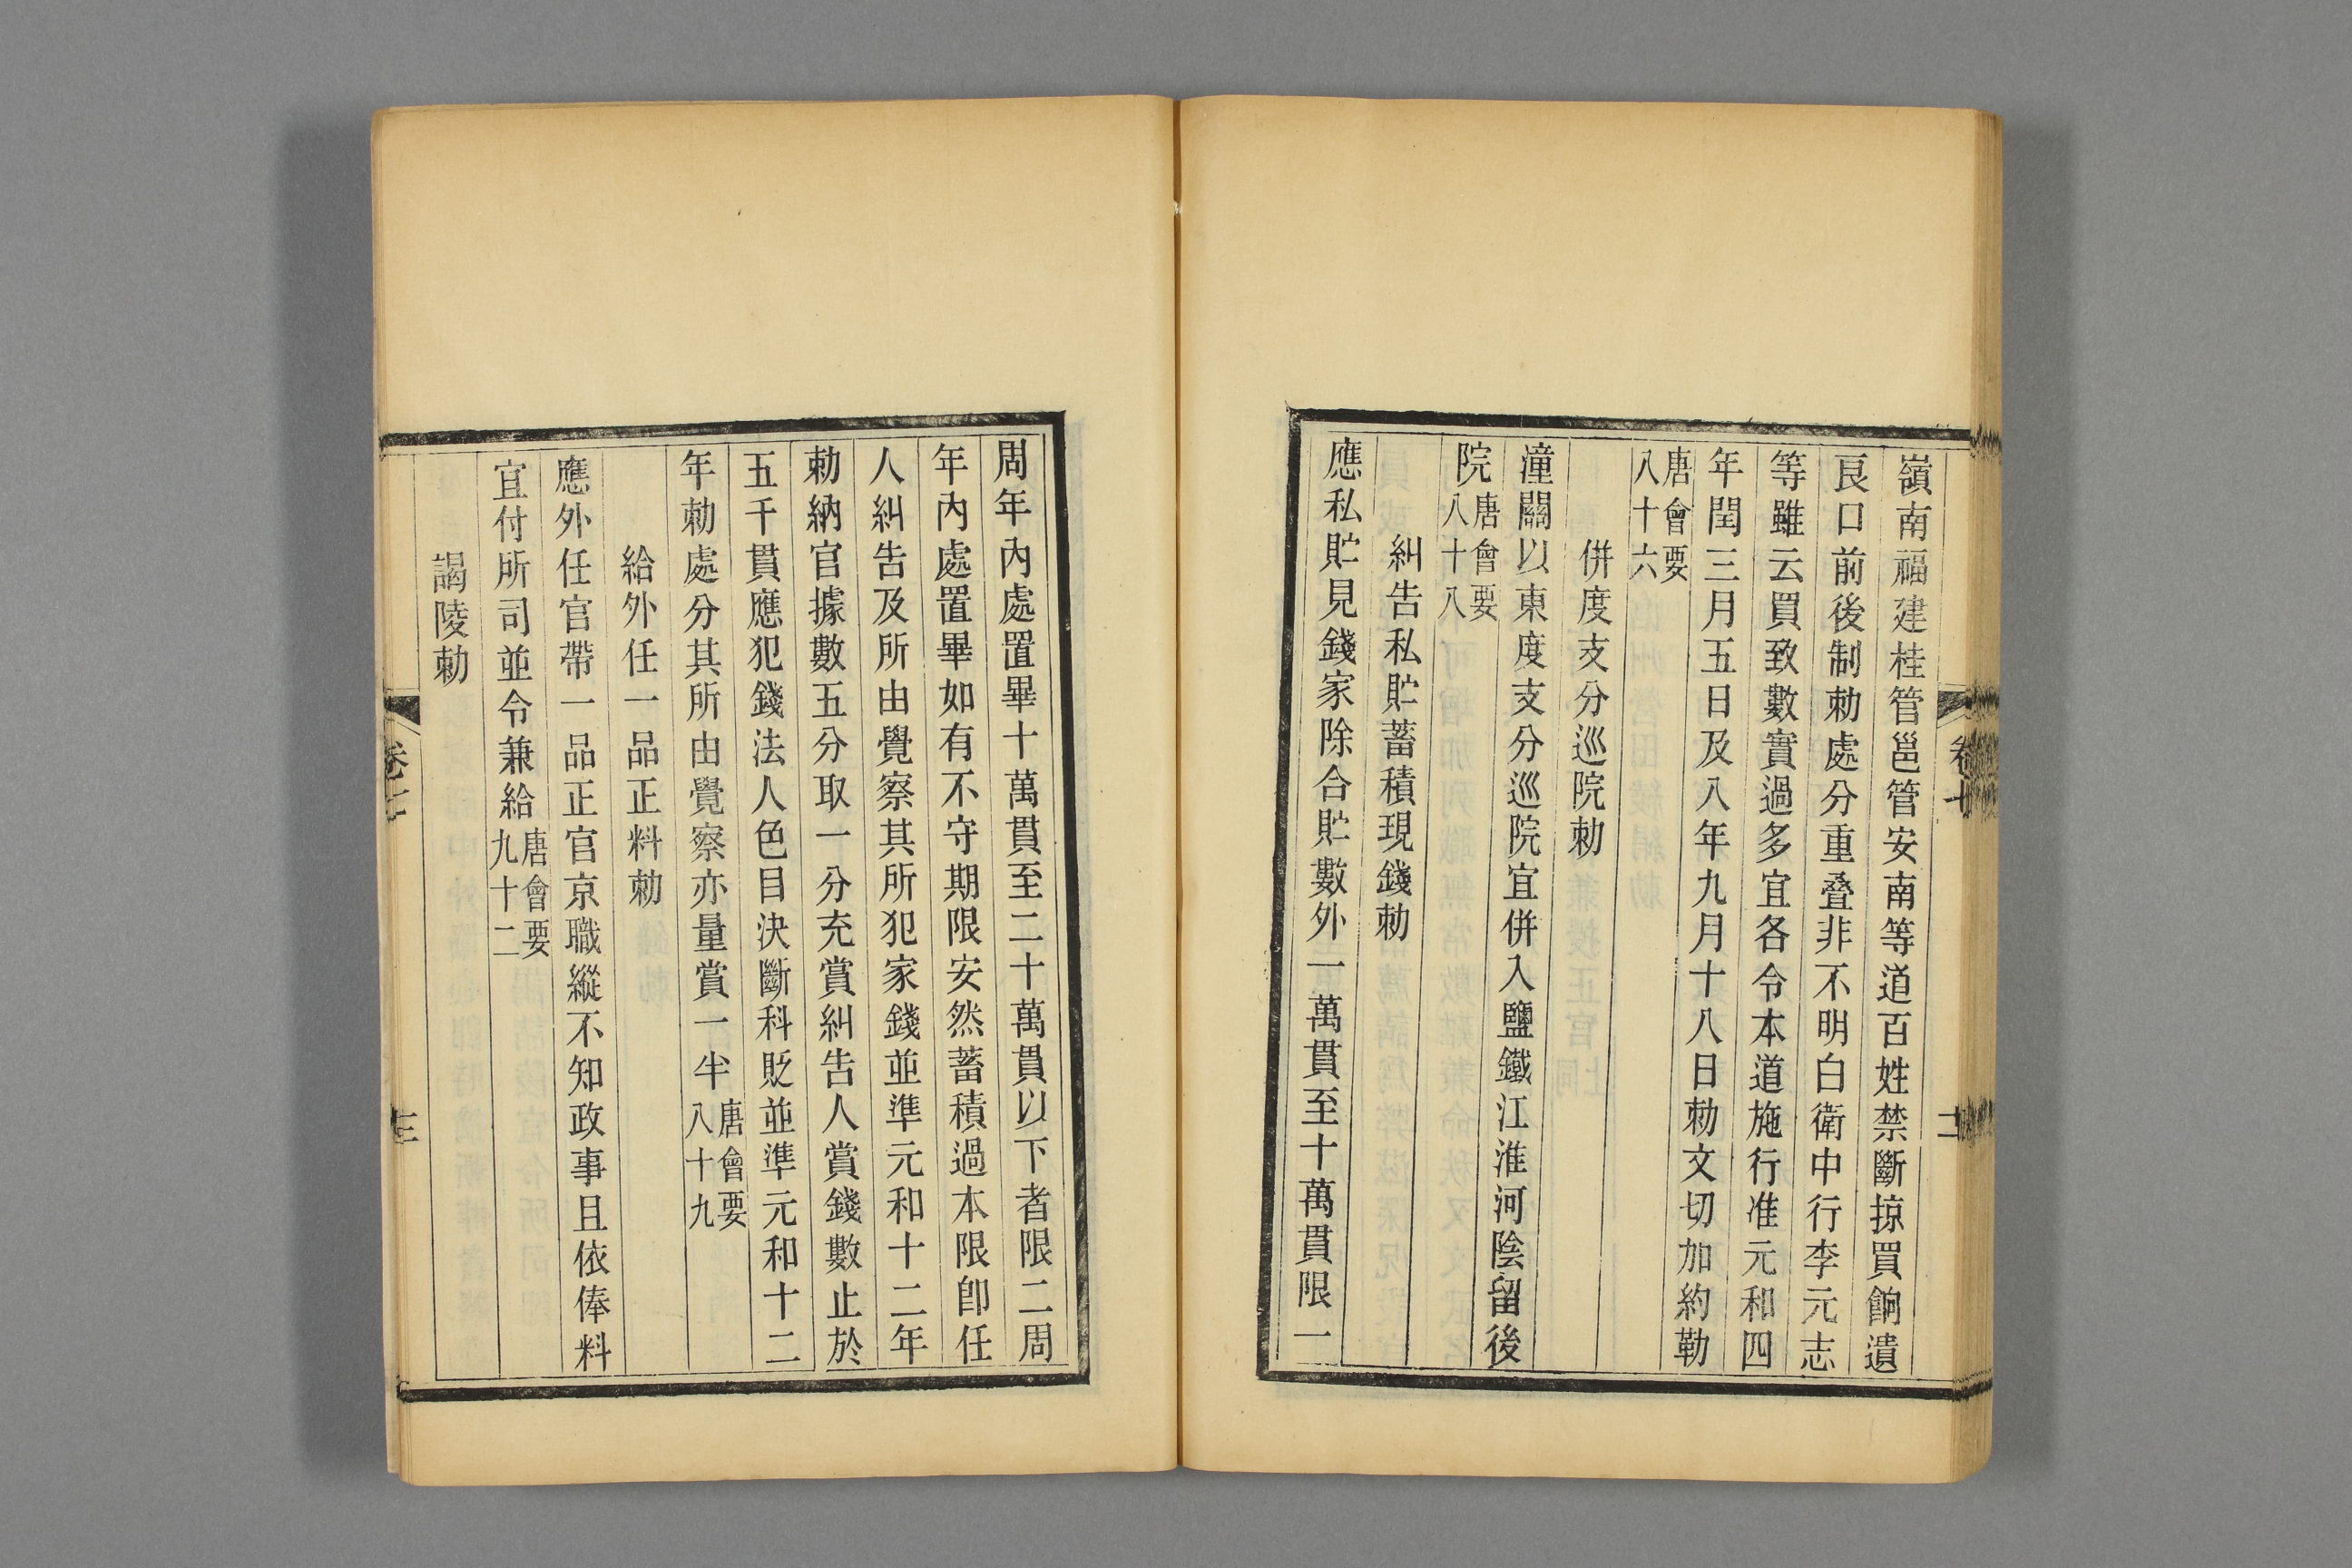 嶺南福建桂管邕管安南等道百姓禁斷掠買餉遺
良口前後制勅處分重叠非不明白衛中行李元志
等雖云買致數實過多宜各令本道施行准元和四
年閏三月五日及八年九月十八日勅文切加約勒
唐會要
八十六
併度支分巡院勅
潼關以東度支分巡院宜併入鹽鐵江淮河陰留後
院唐會要
八十八
糾告私貯蓄積現錢勅
應私貯見錢家除合貯數外一萬貫至十萬貫限一
周年內處置畢十萬貫至二十萬貫以下者限二周
年內處置畢如有不守期限安然蓄積過本限卽任
人糾告及所由覺察其所犯家錢並準元和十二年
勅納官據數五分取一分充賞糾告人賞錢數止於
五千貫應犯錢法人色目決斷科貶並準元和十二
年勅處分其所由覺察亦量賞一半唐會要
八十九
給外任一品正料勅
應外任官帶一品正官京職縱不知政事且依俸料
宜付所司並令兼給唐會要
九十二
謁陵勅